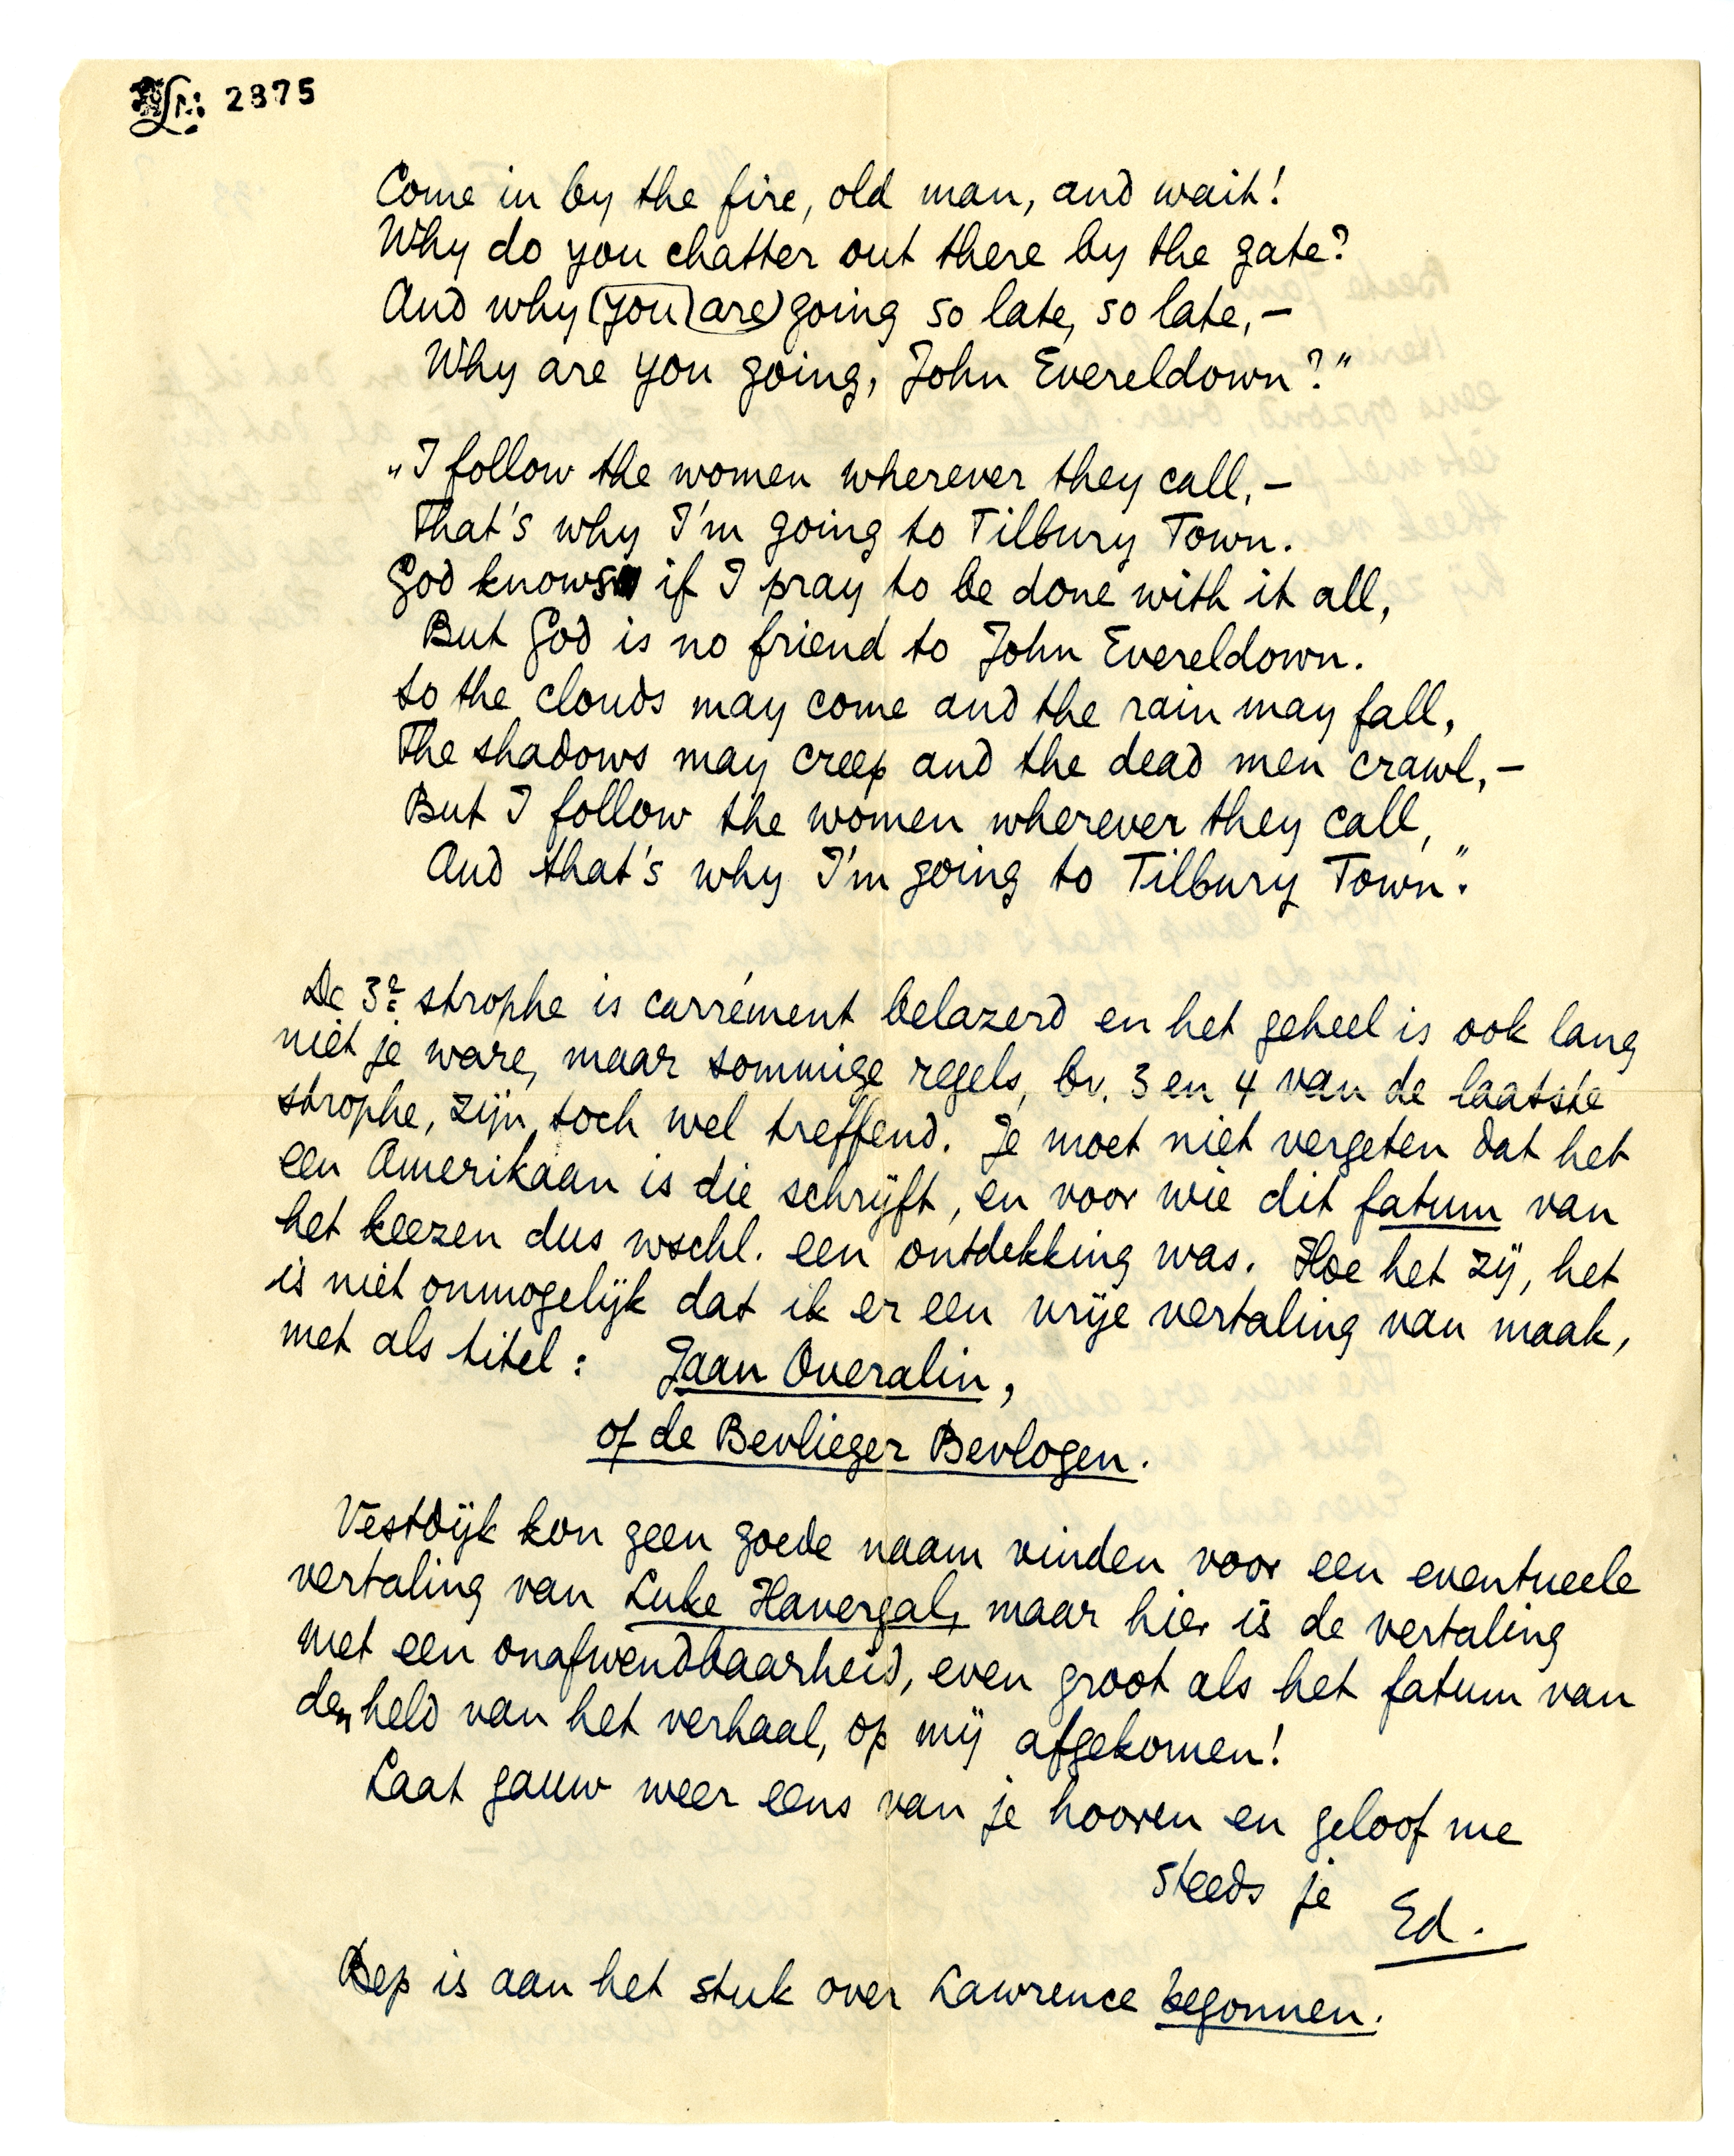 2375
Come in by the fire, old man, and wait!
Why do you chatter out there by the gate?
And why (you) (are) going so late, so late, —
Why are you going, John Evereldown?"
„I follow the women wherever they call, —
That's why I'm going to Tilbury Town.
God knows if I pray to be done with it all,
But God is no friend to John Evereldown.
So the clouds may come and the rain may fall,
The shadows may creep and the dead men crawl, —
But I follow the women wherever they call,
And that's why I'm going to Tilbury Town."
De 3e strophe is carrément belazerd en het geheel is ook lang
niet je ware, maar sommige regels, bv. 3 en 4 van de laatste
strophe, zijn toch wel treffend. Je moet niet vergeten dat het
een Amerikaan is die schrijft, en voor wie dit fatum van
het keezen dus wschl. een ontdekking was. Hoe het zij, het
is niet onmogelijk dat ik er een vrije vertaling van maak,
met als titel: Jaan Overalin,
of de Bevlieger Bevlogen.
Vestdijk kon geen goede naam vinden voor een eventueele
vertaling van Luke Havergal, maar hier is de vertaling
met een onafwendbaarheid, even groot als het fatum van
den held van het verhaal, op mij afgekomen!
Laat gauw weer eens van je hooren en geloof me
steeds je Ed.
Bep is aan het stuk over Lawrence begonnen.